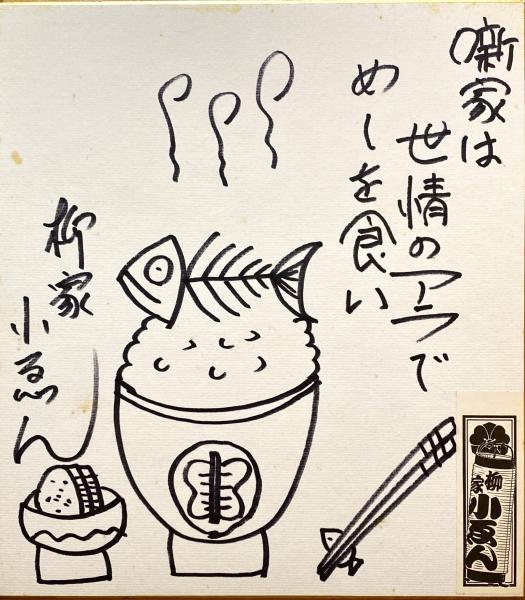 噺家は
世情のアラで
めしを食い
柳家
小ゑん
柳家
小ゑん